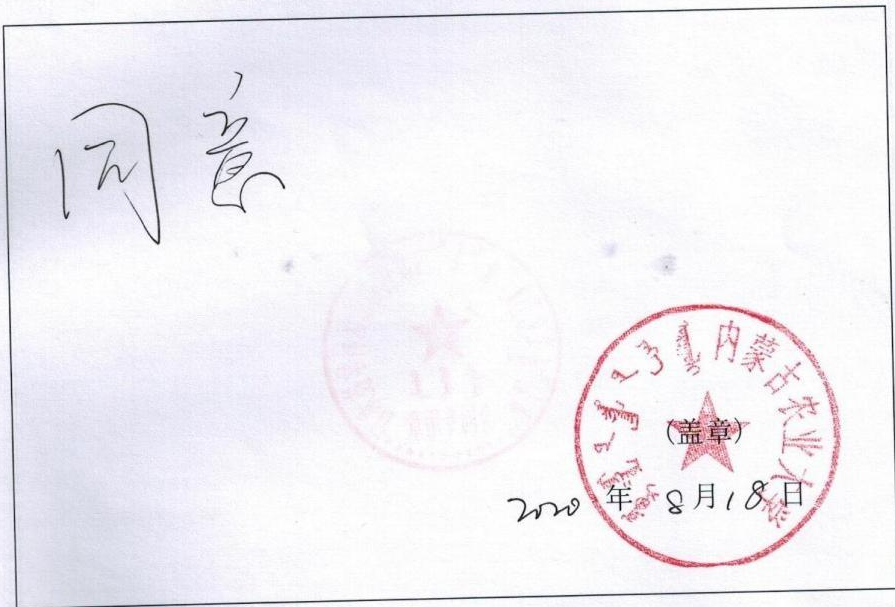 同意
内蒙古农业大学
(盖章)
2020年8月18日